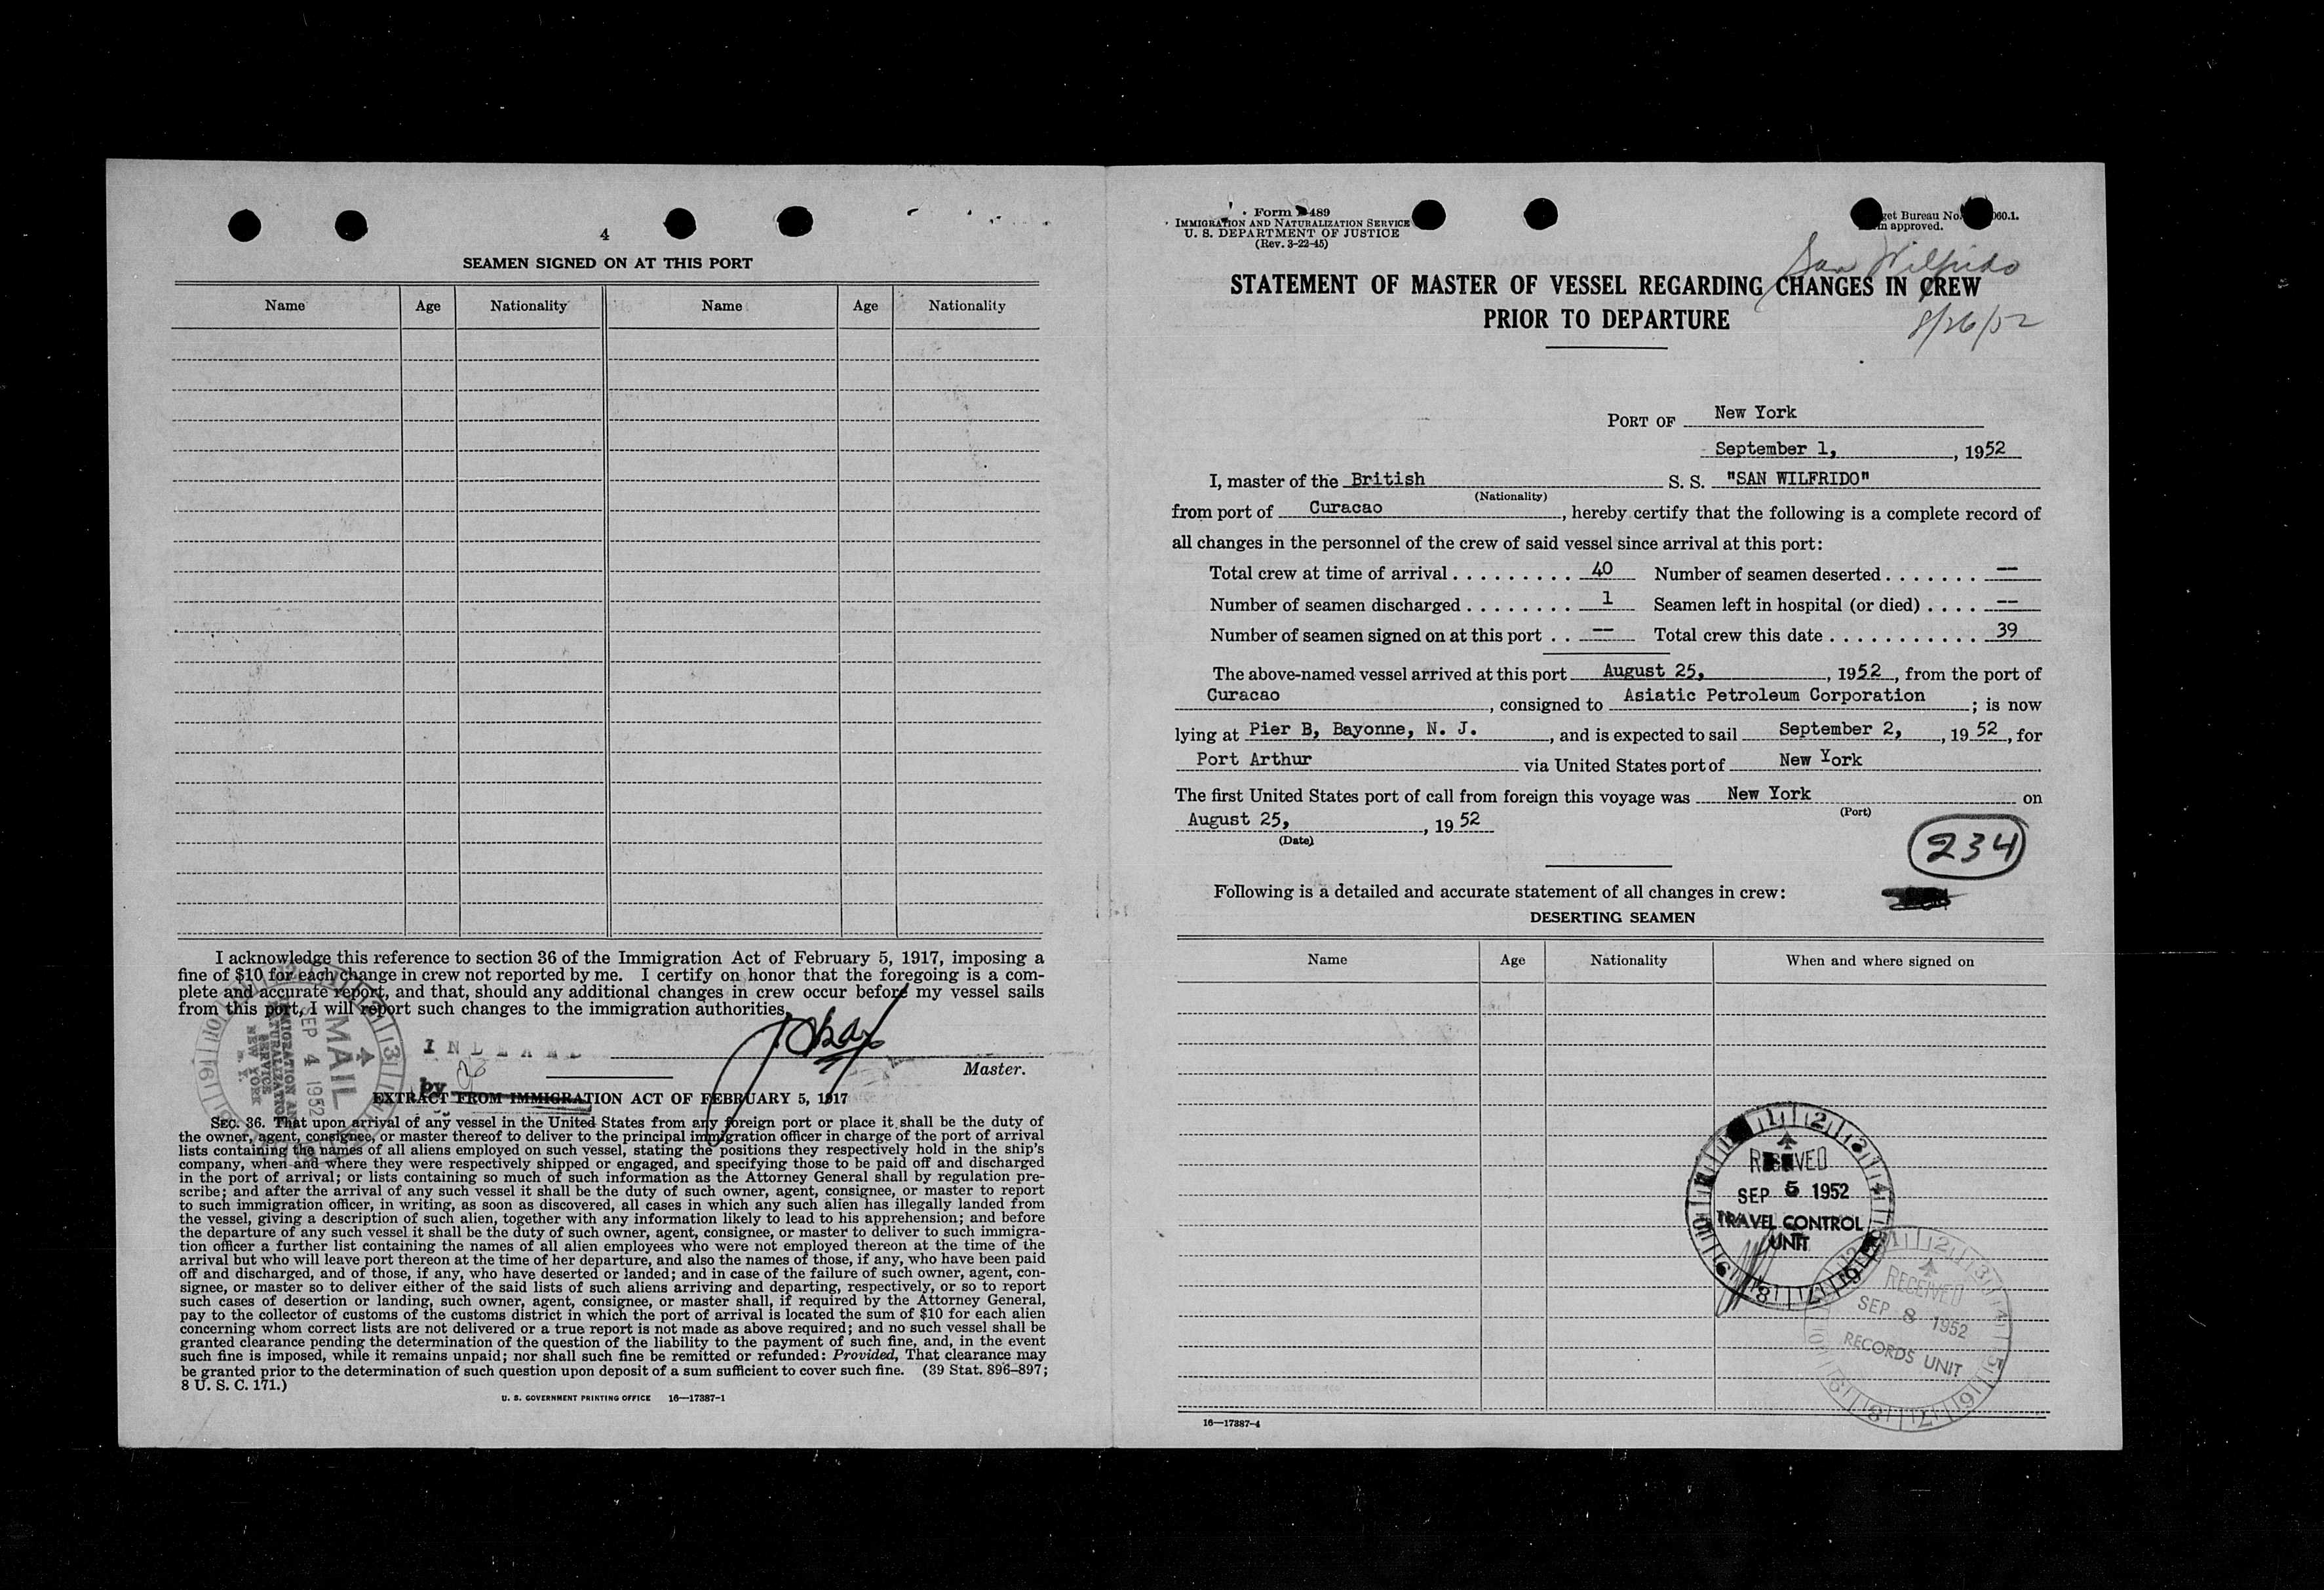 4
SEAMEN SIGNED ON AT THIS PORT
Name Age Nationality Name Age Nationality
I acknowledge this reference to section 36 of the Immigration Act of February 5, 1917, imposing a
fine of $10 for each change in crew not reported by me. I certify on honor that the foregoing is a com-
plete and accurate report, and that, should any additional changes in crew occur before my vessel sails
from this port, I will report such changes to the immigration authorities.
MAIL
SEP 4 1952
IMMIGRATION AND
NATURALIZATION
SERVICE
NEW YORK
N. Y.
by
Master.
EXTRACT FROM IMMIGRATION ACT OF FEBRUARY 5, 1917
SEC. 36. That upon arrival of any vessel in the United States from any foreign port or place it shall be the duty of
the owner, agent, consignee, or master thereof to deliver to the principal immigration officer in charge of the port of arrival
lists containing the names of all aliens employed on such vessel, stating the positions they respectively hold in the ship's
company, when and where they were respectively shipped or engaged, and specifying those to be paid off and discharged
in the port of arrival; or lists containing so much of such information as the Attorney General shall by regulation pre-
scribe; and after the arrival of any such vessel it shall be the duty of such owner, agent, consignee, or master to report
to such immigration officer, in writing, as soon as discovered, all cases in which any such alien has illegally landed from
the vessel, giving a description of such alien, together with any information likely to lead to his apprehension; and before
the departure of any such vessel it shall be the duty of such owner, agent, consignee, or master to deliver to such immigra-
tion officer a further list containing the names of all alien employees who were not employed thereon at the time of the
arrival but who will leave port thereon at the time of her departure, and also the names of those, if any, who have been paid
off and discharged, and of those, if any, who have deserted or landed; and in case of the failure of such owner, agent, con-
signee, or master so to deliver either of the said lists of such aliens arriving and departing, respectively, or so to report
such cases of desertion or landing, such owner, agent, consignee, or master shall, if required by the Attorney General,
pay to the collector of customs of the customs district in which the port of arrival is located the sum of $10 for each alien
concerning whom correct lists are not delivered or a true report is not made as above required; and no such vessel shall be
granted clearance pending the determination of the question of the liability to the payment of such fine, and, in the event
such fine is imposed, while it remains unpaid; nor shall such fine be remitted or refunded: Provided, That clearance may
be granted prior to the determination of such question upon deposit of a sum sufficient to cover such fine. (39 Stat. 896–897;
8 U. S. C. 171.)
U. S. GOVERNMENT PRINTING OFFICE 16—17387-1
Form 489
IMMIGRATION AND NATURALIZATION SERVICE
U. S. DEPARTMENT OF JUSTICE
(Rev. 3-22-45)
Bureau No. 060.1.
approved.
San Wilfrido
8/26/52
STATEMENT OF MASTER OF VESSEL REGARDING CHANGES IN CREW
PRIOR TO DEPARTURE
PORT OF New York
September 1, , 1952
I, master of the British S. S. "SAN WILFRIDO"
(Nationality)
from port of Curacao , hereby certify that the following is a complete record of
all changes in the personnel of the crew of said vessel since arrival at this port:
Total crew at time of arrival . . . . . . . . . 40 Number of seamen deserted . . . . . . . --
Number of seamen discharged . . . . . . . . 1 Seamen left in hospital (or died) . . . . --
Number of seamen signed on at this port . . -- Total crew this date . . . . . . . . . . . 39
The above-named vessel arrived at this port August 25, , 1952 , from the port of
Curacao , consigned to Asiatic Petroleum Corporation ; is now
lying at Pier B, Bayonne, N. J. , and is expected to sail September 2, , 19 52 , for
Port Arthur via United States port of New York
The first United States port of call from foreign this voyage was New York on
(Port)
August 25, , 19 52
(Date)
234
Following is a detailed and accurate statement of all changes in crew:
DESERTING SEAMEN
Name Age Nationality When and where signed on
RECEIVED
SEP 5 1952
TRAVEL CONTROL
UNIT
RECEIVED
SEP 8 1952
RECORDS UNIT
16—17387-4